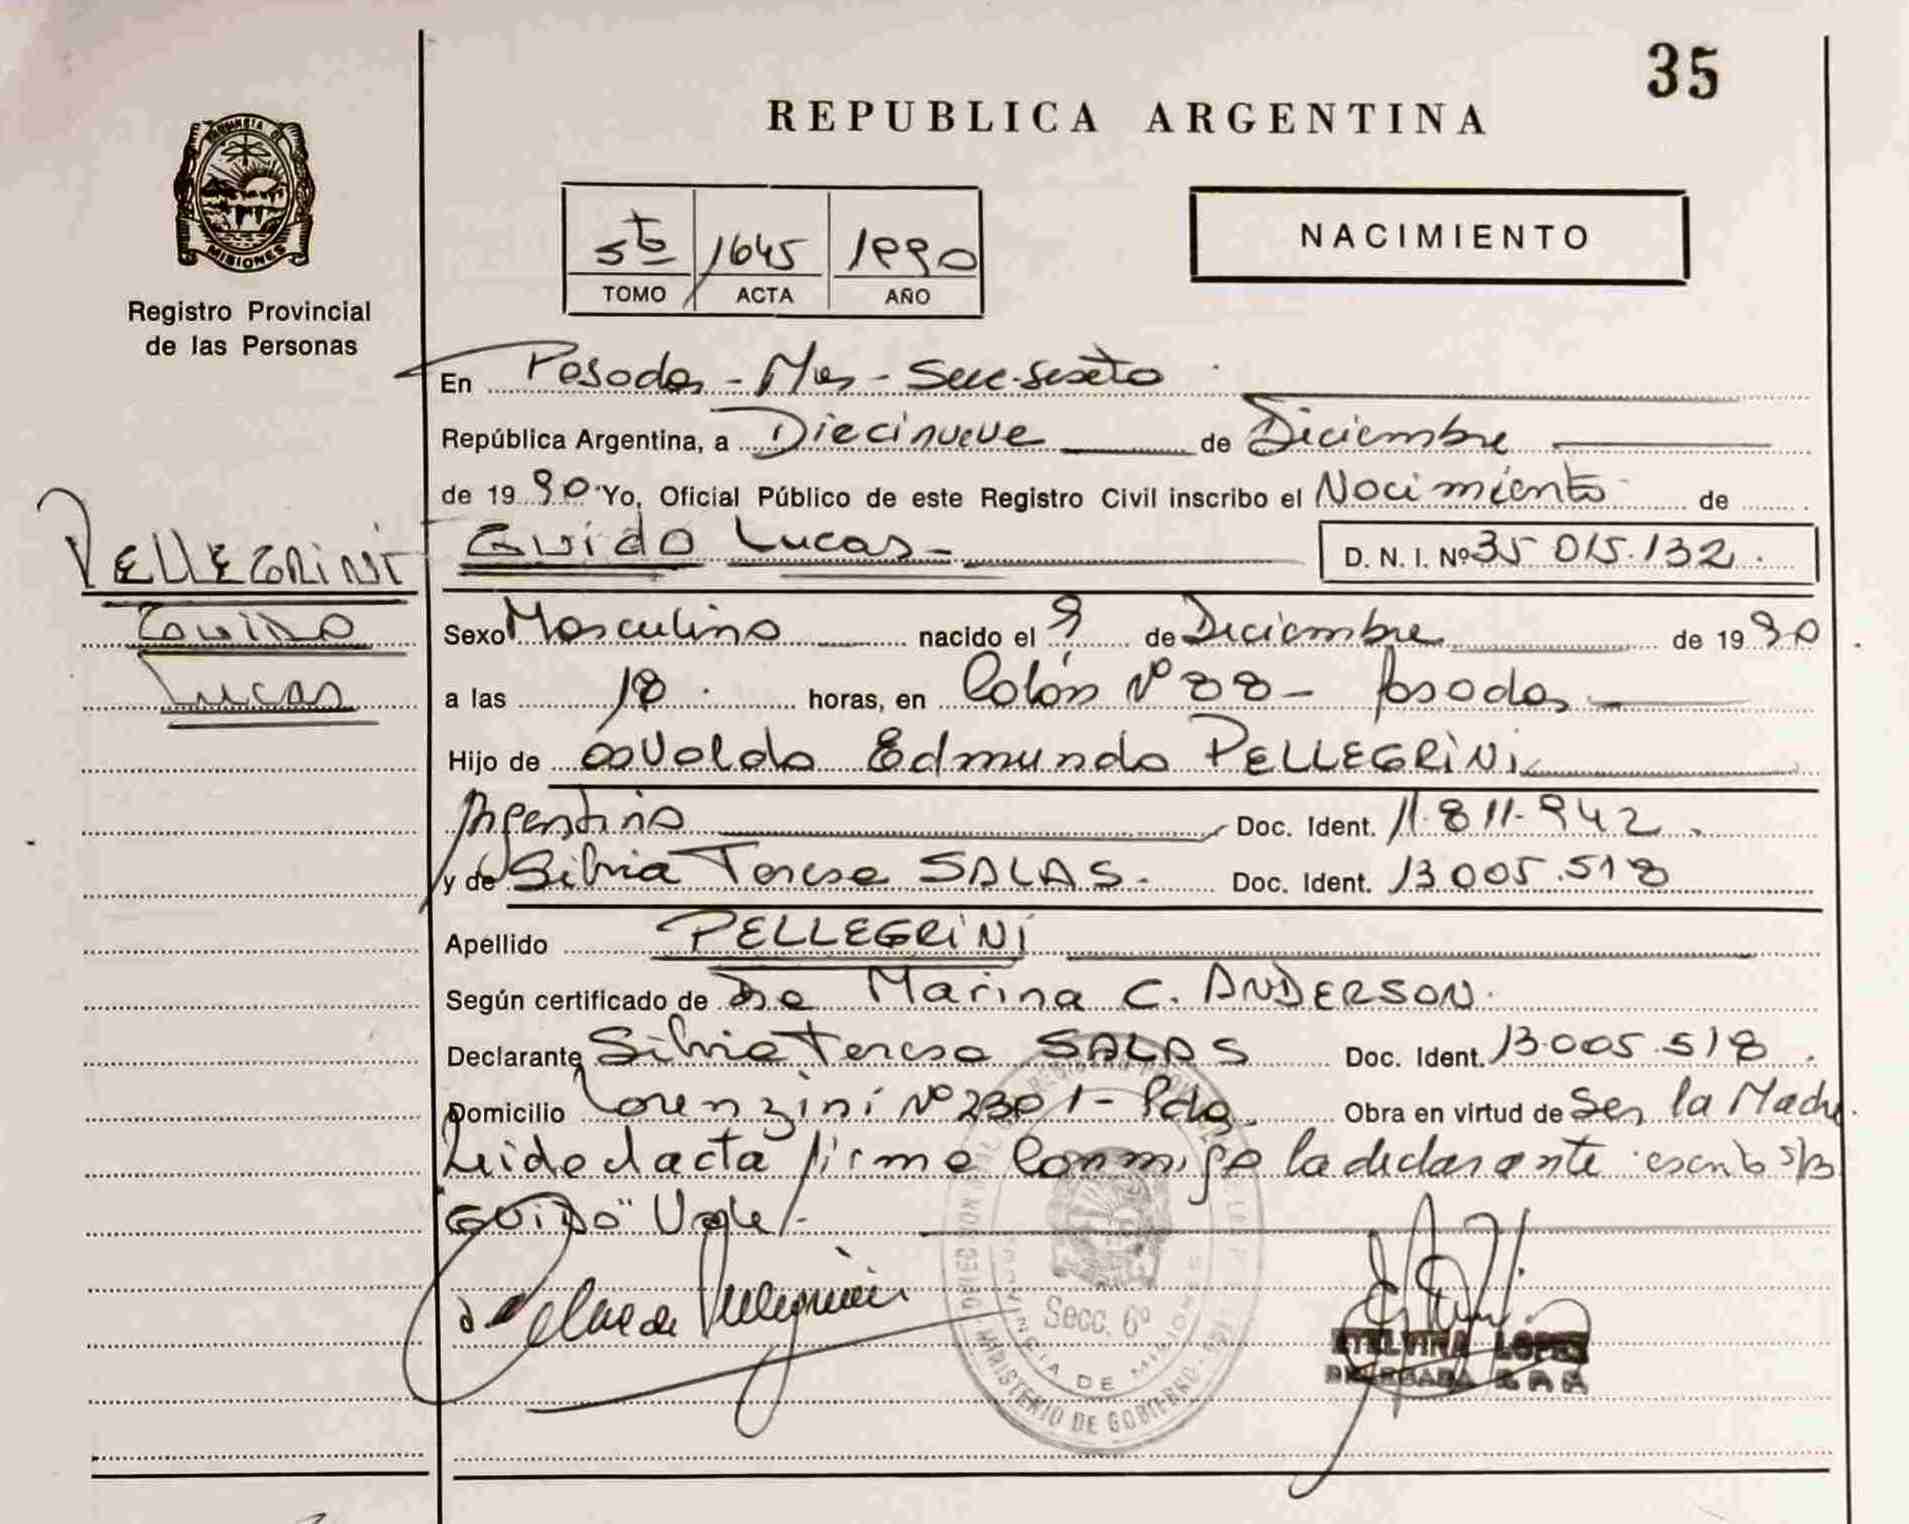 35
REPUBLICA ARGENTINA
PROVINCIA DE
MISIONES
Registro Provincial
de las Personas
5to 1645 1990
TOMO ACTA AÑO
NACIMIENTO
En Posadas - Mnes - Secc. sexto
República Argentina, a Diecinueve de Diciembre
de 1990 Yo, Oficial Público de este Registro Civil inscribo el Nacimiento de
Guido Lucas - D. N. I. Nº 35 015.132.
PELLEGRINI
GUIDO
Lucas
Sexo Masculino nacido el 9 de Diciembre de 1990
a las 18. horas, en Colón Nº 88 - Posadas
Hijo de Osvaldo Edmundo PELLEGRINI
Argentino Doc. Ident. 11.811.942.
y de Silvia Teresa SALAS. Doc. Ident. 13 005.518
Apellido PELLEGRINI
Según certificado de Dra Marina C. ANDERSON.
Declarante Silvia Teresa SALAS Doc. Ident. 13.005.518.
Domicilio Lorenzini Nº 2301 - Pdas. Obra en virtud de Ser la Madre.
Leida el acta firma conmigo la declarante escrito s/b
"GUIDO" Vale/-
de Pellegrini
Secc. 6º
PROVINCIA DE MISIONES
MINISTERIO DE GOBIERNO
ETELVINA LOPEZ
DELEGADA